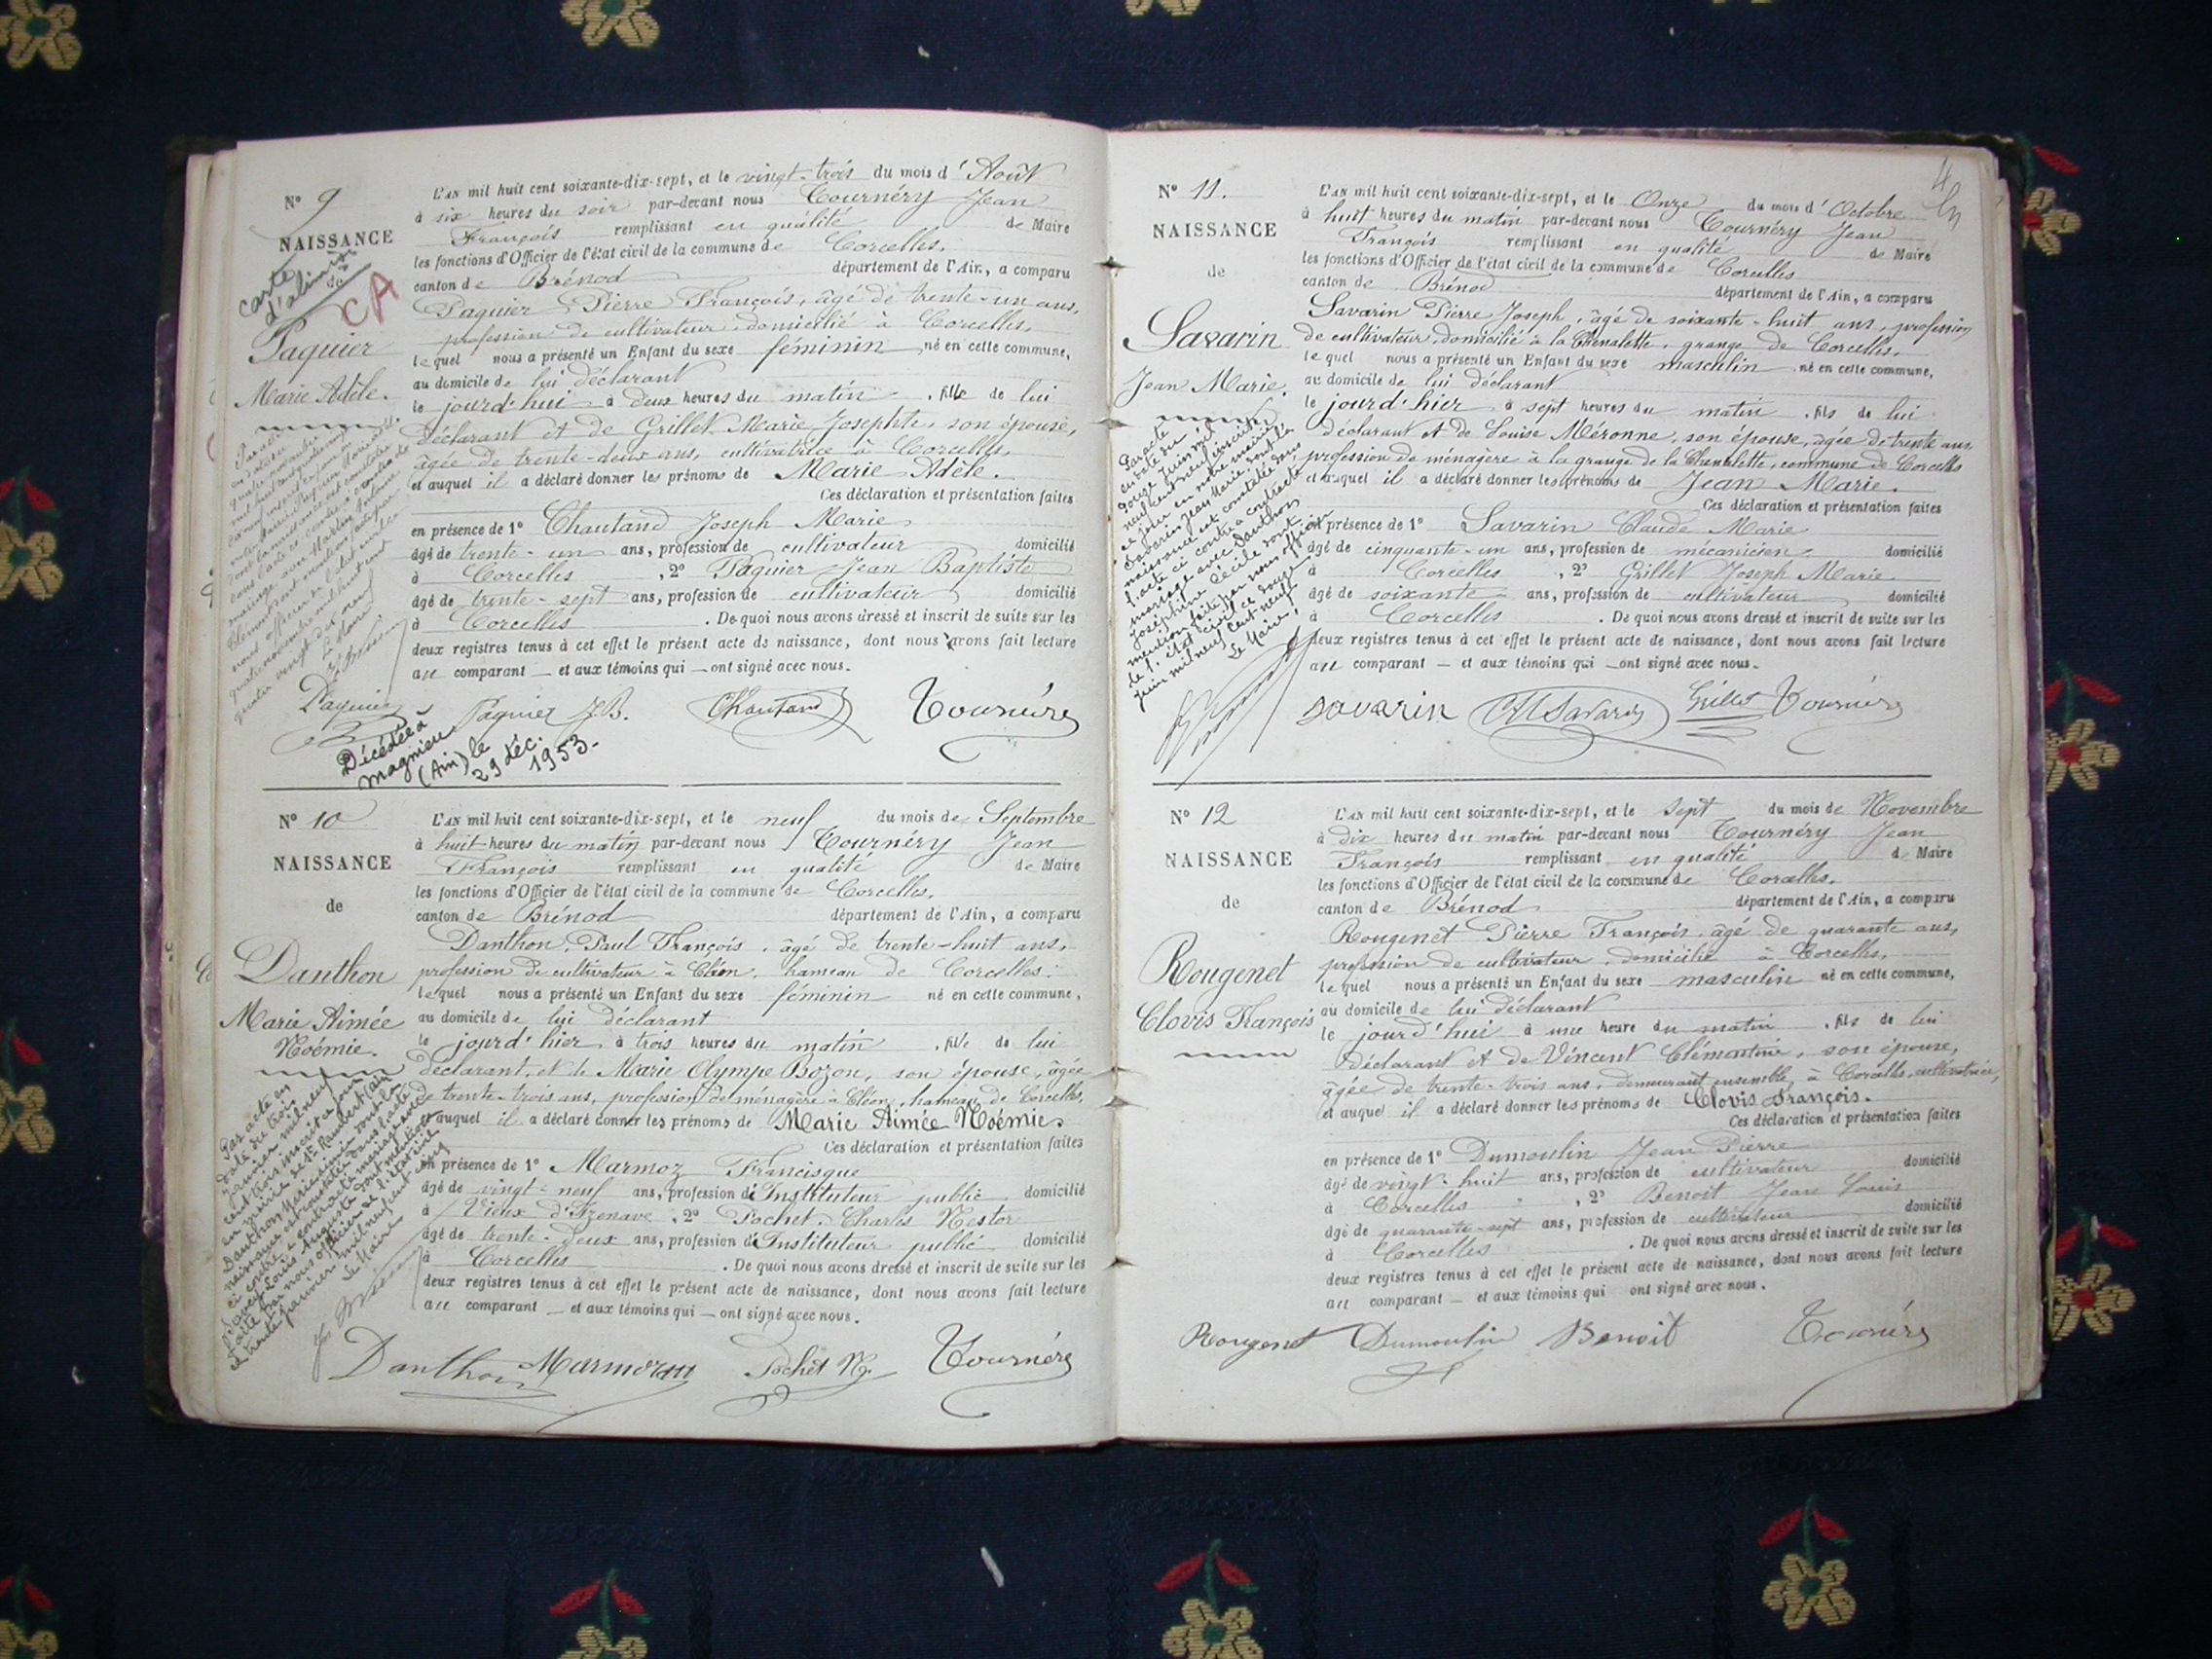 N° 9
NAISSANCE
de
carte
d'alimion
CA
Paquier
Marie Adèle.
L'AN mil huit cent soixante-dix-sept, et le vingt-trois du mois d'Août
à six heures du soir par-devant nous Tournéry Jean
François remplissant en qualité de Maire
les fonctions d'Officier de l'état civil de la commune de Corcelles.
canton de Brénod département de l'Ain, a comparu
Paquier Pierre François, âgé de trente-un ans,
profession de cultivateur, domicilié à Corcelles,
lequel nous a présenté un Enfant du sexe féminin né en cette commune,
au domicile de lui déclarant
le jourd'hui à deux heures du matin, fille de lui
déclarant et de Grillet Marie Josephte, son épouse,
âgée de trente-deux ans, cultivatrice à Corcelles,
et auquel il a déclaré donner les prénoms de Marie Adèle.
Ces déclaration et présentation faites
en présence de 1° Chautand Joseph Marie
âgé de trente-un ans, profession de cultivateur domicilié
à Corcelles, 2° Paquier Jean Baptiste
âgé de trente-sept ans, profession de cultivateur domicilié
à Corcelles. De quoi nous avons dressé et inscrit de suite sur les
deux registres tenus à cet effet le présent acte de naissance, dont nous avons fait lecture
au comparant — et aux témoins qui — ont signé avec nous.
Paquier Paquier J.B. Chautand Tournéry
Décédée à
Magnieu
(Ain) le
29 déc.
1953.
N° 10
NAISSANCE
de
Danthon
Marie Aimée
Noémie.
L'AN mil huit cent soixante-dix-sept, et le neuf du mois de Septembre
à huit heures du matin par-devant nous Tournéry Jean
François remplissant en qualité de Maire
les fonctions d'Officier de l'état civil de la commune de Corcelles.
canton de Brénod département de l'Ain, a comparu
Danthon, Paul François, âgé de trente-huit ans,
profession de cultivateur à Cléon, hameau de Corcelles.
lequel nous a présenté un Enfant du sexe féminin né en cette commune,
au domicile de lui déclarant
le jourd'hier à trois heures du matin, fille de lui
déclarant, et de Marie Olympe Bozon, son épouse, âgée
de trente-trois ans, profession de ménagère à Cléon, hameau de Corcelles,
et auquel il a déclaré donner les prénoms de Marie Aimée Noémie.
Ces déclaration et présentation faites
en présence de 1° Marmoz Francisque
âgé de vingt-neuf ans, profession d'Instituteur public domicilié
à Vieux d'Izenave, 2° Pochet Charles Nestor
âgé de trente-deux ans, profession d'Instituteur public domicilié
à Corcelles. De quoi nous avons dressé et inscrit de suite sur les
deux registres tenus à cet effet le présent acte de naissance, dont nous avons fait lecture
au comparant — et aux témoins qui — ont signé avec nous.
Danthon Marmoz Pochet N. Tournéry
4
N° 11.
NAISSANCE
de
Savarin
Jean Marie.
Par acte
en date du
douze juin mil
neuf cent neuf inscrit
ce jour en notre mairie
Savarin Jean Marie dont la
naissance est constatée dans
l'acte ci contre a contracté
mariage avec Danthon
Joséphine Cécile dont
mention faite par nous officier
de l'état civil ce douze
juin mil neuf cent neuf.
Le Maire,
L'AN mil huit cent soixante-dix-sept, et le Onze du mois d'Octobre
à huit heures du matin par-devant nous Tournéry Jean
François remplissant en qualité de Maire
les fonctions d'Officier de l'état civil de la commune de Corcelles
canton de Brénod département de l'Ain, a comparu
Savarin Pierre Joseph, âgé de soixante-huit ans, profession
de cultivateur, domicilié à la Chenalette, grange de Corcelles.
lequel nous a présenté un Enfant du sexe masculin né en cette commune,
au domicile de lui déclarant
le jourd'hier à sept heures du matin, fils de lui
déclarant et de Louise Méronne, son épouse, âgée de trente ans,
profession de ménagère à la grange de la Chenalette, commune de Corcelles
et auquel il a déclaré donner les prénoms de Jean Marie.
Ces déclaration et présentation faites
en présence de 1° Savarin Claude Marie
âgé de cinquante-un ans, profession de mécanicien domicilié
à Corcelles, 2° Grillet Joseph Marie
âgé de soixante ans, profession de cultivateur domicilié
à Corcelles. De quoi nous avons dressé et inscrit de suite sur les
deux registres tenus à cet effet le présent acte de naissance, dont nous avons fait lecture
au comparant — et aux témoins qui — ont signé avec nous.
Savarin CM Savarin Grillet Tournéry
N° 12
NAISSANCE
de
Rougenet
Clovis François
L'AN mil huit cent soixante-dix-sept, et le sept du mois de Novembre
à dix heures du matin par-devant nous Tournéry Jean
François remplissant en qualité de Maire
les fonctions d'Officier de l'état civil de la commune de Corcelles.
canton de Brénod département de l'Ain, a comparu
Rougenet Pierre François, âgé de quarante ans,
profession de cultivateur, domicilié à Corcelles,
lequel nous a présenté un Enfant du sexe masculin né en cette commune,
au domicile de lui déclarant
le jourd'hui à une heure du matin, fils de lui
déclarant et de Vincent Clémentine, son épouse,
âgée de trente-trois ans, demeurant ensemble à Corcelles, cultivatrice,
et auquel il a déclaré donner les prénoms de Clovis François.
Ces déclaration et présentation faites
en présence de 1° Dumoulin Jean Pierre
âgé de vingt-huit ans, profession de cultivateur domicilié
à Corcelles, 2° Benoit Jean Louis
âgé de quarante-sept ans, profession de cultivateur domicilié
à Corcelles. De quoi nous avons dressé et inscrit de suite sur les
deux registres tenus à cet effet le présent acte de naissance, dont nous avons fait lecture
au comparant — et aux témoins qui ont signé avec nous.
Rougenet Dumoulin Benoit Tournéry